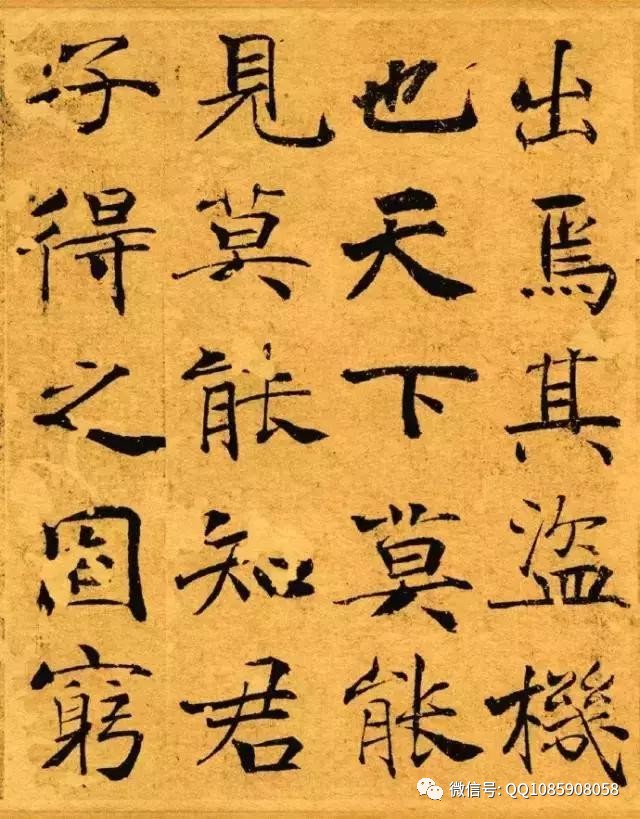 出焉其盜機
也天下莫能
見莫能知君
子得之固窮
微信号: QQ1085908058